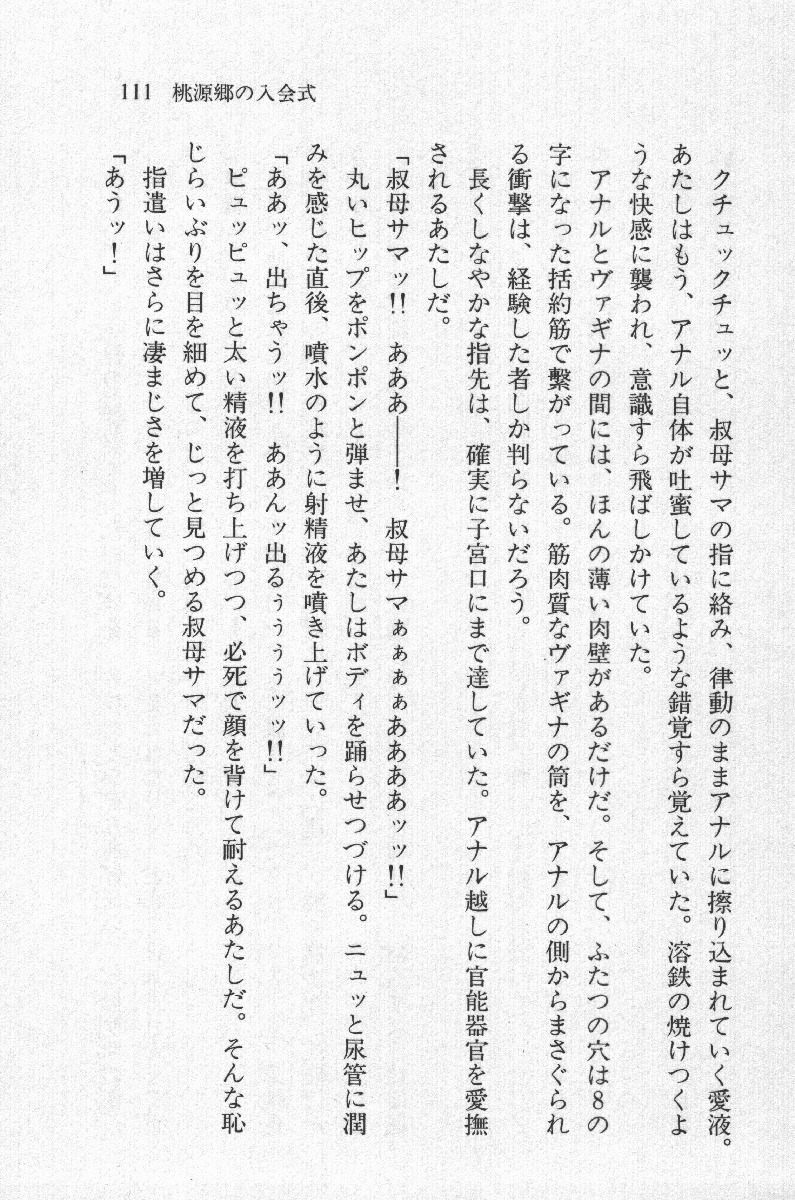 111 桃源郷の入会式
クチュックチュッと、叔母サマの指に絡み、律動のままアナルに擦り込まれていく愛液。
あたしはもう、アナル自体が吐蜜しているような錯覚すら覚えていた。溶鉄の焼けつくよ
うな快感に襲われ、意識すら飛ばしかけていた。
アナルとヴァギナの間には、ほんの薄い肉壁があるだけだ。そして、ふたつの穴は8の
字になった括約筋で繋がっている。筋肉質なヴァギナの筒を、アナルの側からまさぐられ
る衝撃は、経験した者しか判らないだろう。
長くしなやかな指先は、確実に子宮口にまで達していた。アナル越しに官能器官を愛撫
されるあたしだ。
「叔母サマッ!! あああ――! 叔母サマぁぁぁぁああああッッ!!」
丸いヒップをポンポンと弾ませ、あたしはボディを踊らせつづける。ニュッと尿管に潤
みを感じた直後、噴水のように射精液を噴き上げていった。
「ああッ、出ちゃうッ!! ああんッ出るぅぅぅぅッッ!!」
ピュッピュッと太い精液を打ち上げつつ、必死で顔を背けて耐えるあたしだ。そんな恥
じらいぶりを目を細めて、じっと見つめる叔母サマだった。
指遣いはさらに凄まじさを増していく。
「あうッ!」